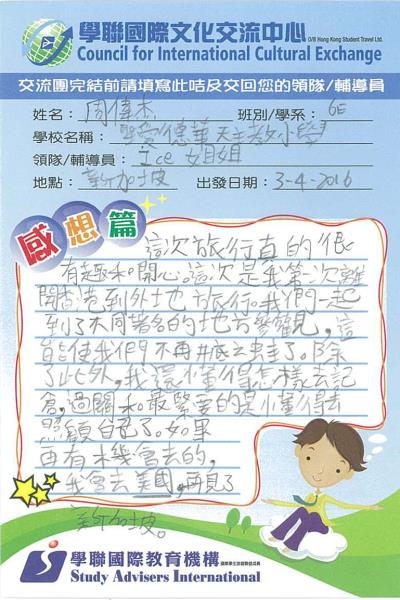 學聯國際文化交流中心 O/B Hong Kong Student Travel Ltd.
Council for International Cultural Exchange
交流團完結前請填寫此咭及交回您的領隊/輔導員
姓名：周偉杰 班別/學系：6E
學校名稱：聖愛德華天主教小學
領隊/輔導員：Ice 姐姐
地點：新加坡 出發日期：3-4-2016
感想篇
這次旅行真的很
有趣和開心。這次是我第一次離
開香港到外地旅行。我們一起
到了不同著名的地方參觀，這
能使我們不再井底之蛙了。除
了此外，我還懂得怎樣去記
過關和最緊要的是懂得去
照顧自己了。如果
再有機會去的，
我會去美國，再見了
新加坡。
學聯國際教育機構
Study Advisers International